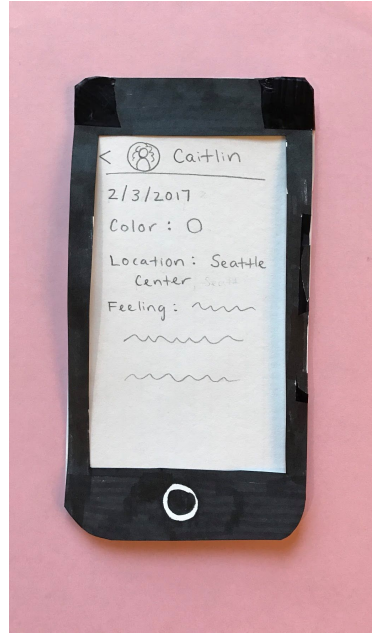 < Caitlin
2/3/2017
Color: O
Location: Seattle
Center
Feeling: